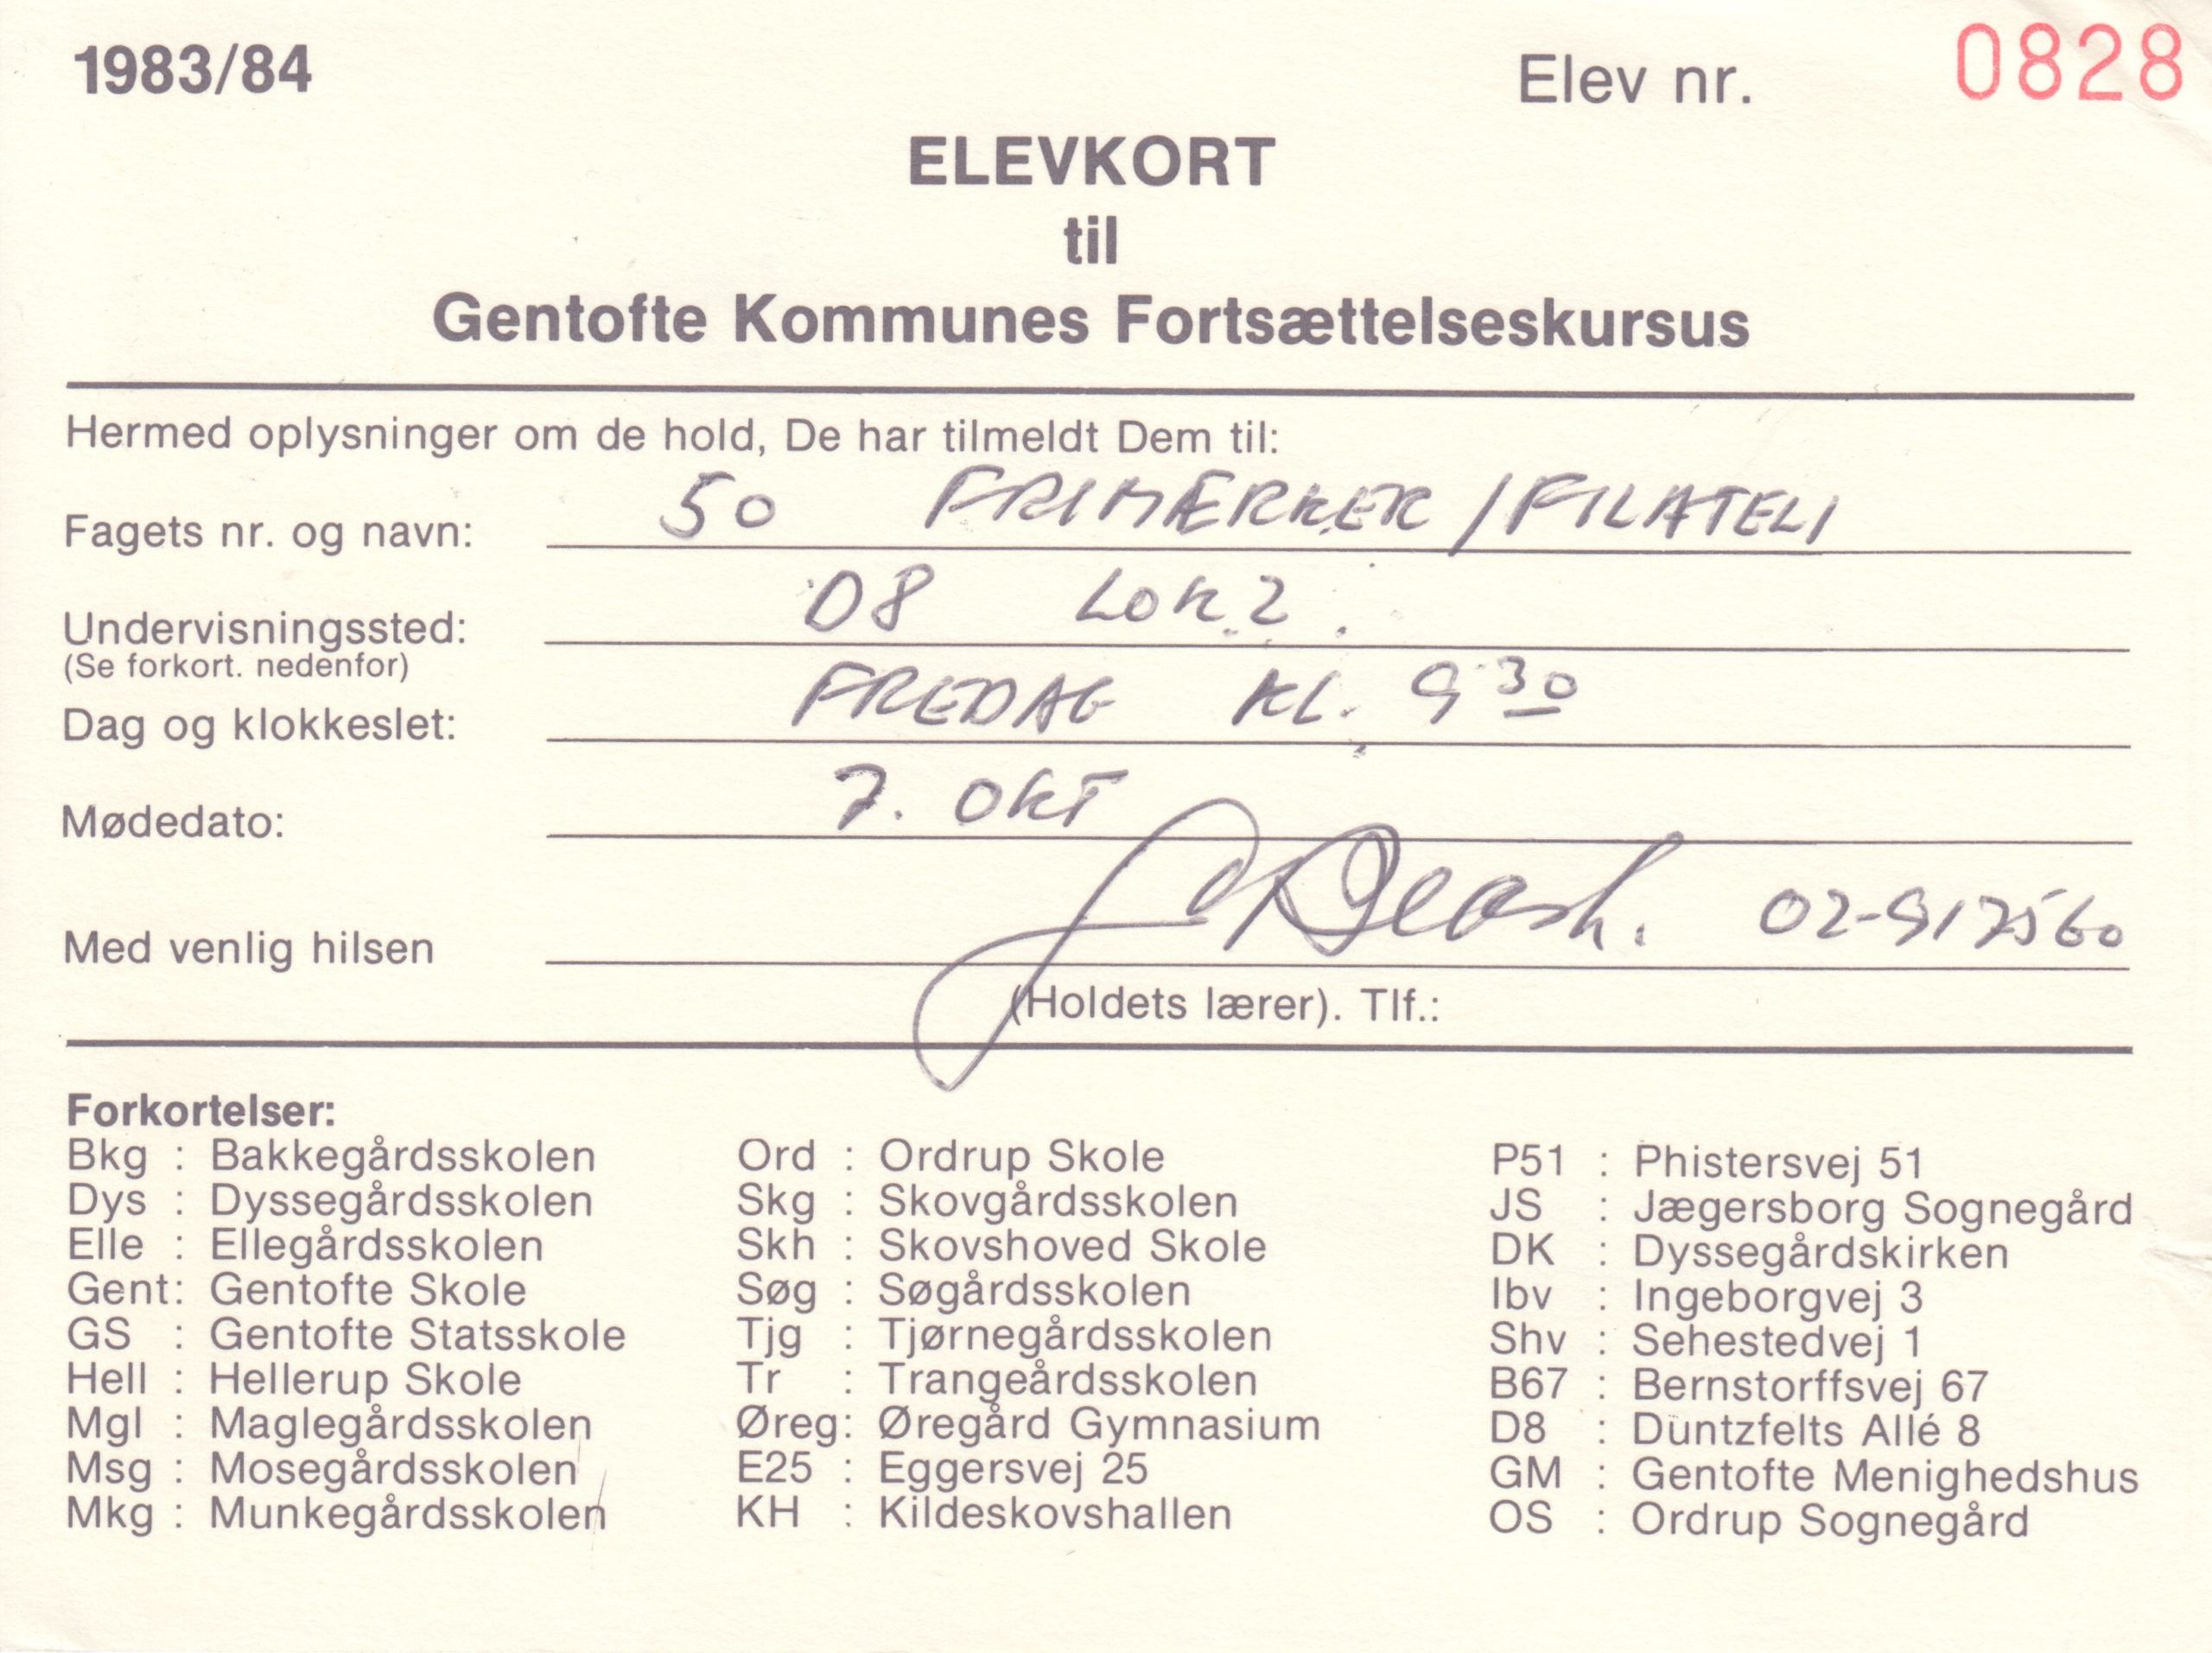 1983/84 Elev nr. 0828
ELEVKORT
til
Gentofte Kommunes Fortsættelseskursus
Hermed oplysninger om de hold, De har tilmeldt Dem til:
Fagets nr. og navn: 50 FRIMÆRKER/FILATELI
Undervisningssted: D8 LOK. 2.
(Se forkort. nedenfor)
Dag og klokkeslet: FREDAG KL. 9 30
Mødedato: 7. OKT
Med venlig hilsen 02-917560
(Holdets lærer). Tlf.:
Forkortelser:
Bkg : Bakkegårdsskolen Ord : Ordrup Skole P51 : Phistersvej 51
Dys : Dyssegårdsskolen Skg : Skovgårdsskolen JS : Jægersborg Sognegård
Elle : Ellegårdsskolen Skh : Skovshoved Skole DK : Dyssegårdskirken
Gent: Gentofte Skole Søg : Søgårdsskolen Ibv : Ingeborgvej 3
GS : Gentofte Statsskole Tjg : Tjørnegårdsskolen Shv : Sehestedvej 1
Hell : Hellerup Skole Tr : Trangeårdsskolen B67 : Bernstorffsvej 67
Mgl : Maglegårdsskolen Øreg: Øregård Gymnasium D8 : Duntzfelts Allé 8
Msg : Mosegårdsskolen E25 : Eggersvej 25 GM : Gentofte Menighedshus
Mkg : Munkegårdsskolen KH : Kildeskovshallen OS : Ordrup Sognegård